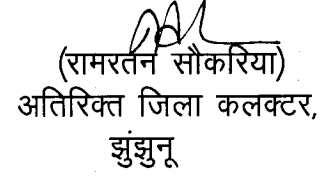 (रामरतन सौकरिया)
अतिरिक्त जिला कलक्टर,
झुंझुनू